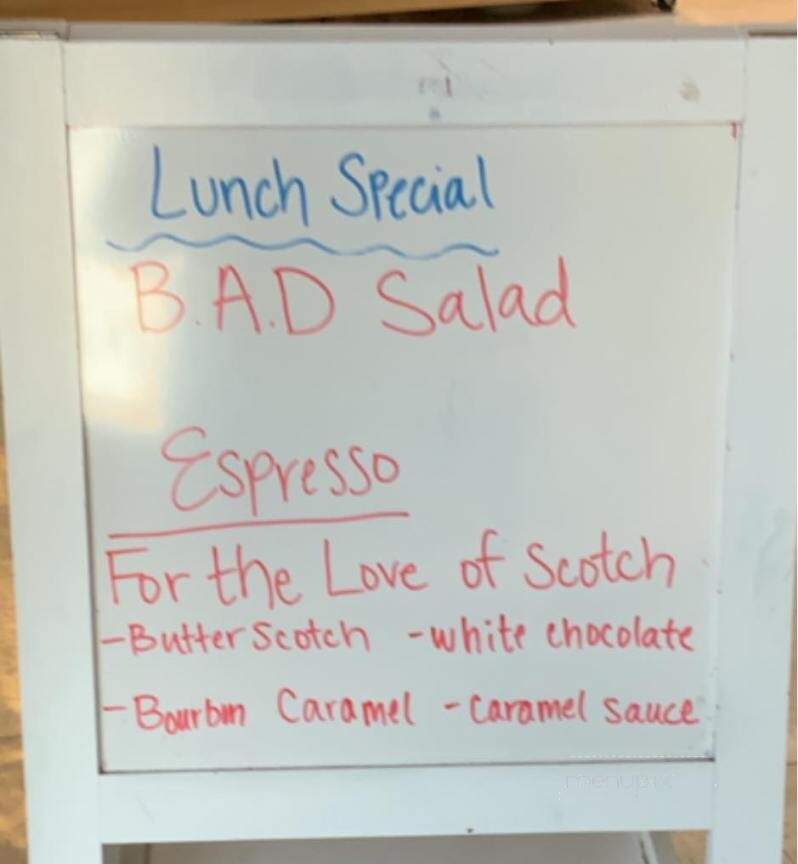 Lunch Special
B.A.D Salad
Espresso
For the Love of Scotch
-Butter Scotch -white chocolate
-Bourbon Caramel -caramel sauce
menupix